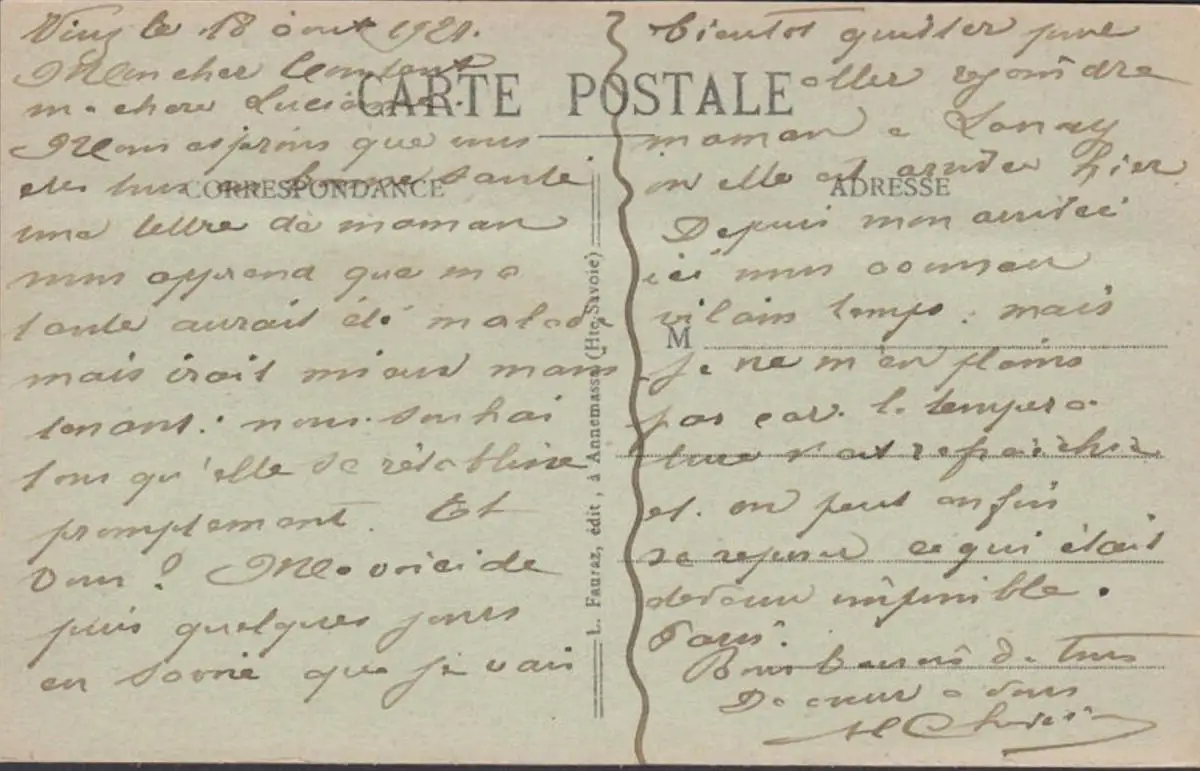 le 18 août 1921.
Mon cher
ma chère
CARTE POSTALE
Nous espérons que vous
êtes tous bonne santé
CORRESPONDANCE
une lettre de maman
nous apprend que ma
tante aurait été malade
mais irait mieux main
tenant : nous souhai
tons qu'elle se rétablisse
promptement. Et
vous ? Me voici de
puis quelques jours
en Savoie que je vais
L. Fauraz, édit, à Annemasse (Hte Savoie)
bientôt quitter pour
aller rejoindre
maman a
où elle est arrivée hier
ADRESSE
Depuis mon arrivée
ici nous avons eu
vilain temps : mais
M
je ne m'en plains
pas car la tempéra
ture s'est rafraîchie
et on peut enfin
se reposer ce qui était
devenu impossible.
Bons baisers de tous
De cœur a vous